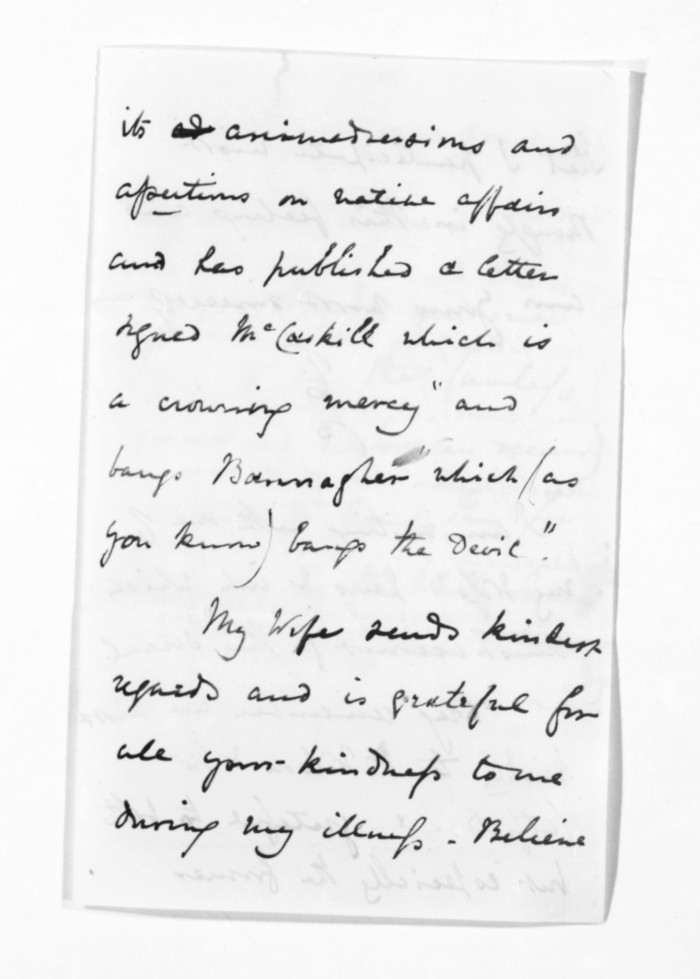 its animadversions and
assertions on native affairs
and has published a letter
signed McCaskill which is
a crowning mercy" and
bangs Bannagher" which (as
you know) bangs the Devil".
My Wife sends kindest
regards and is grateful for
all your kindness to me
during my illness - Believe